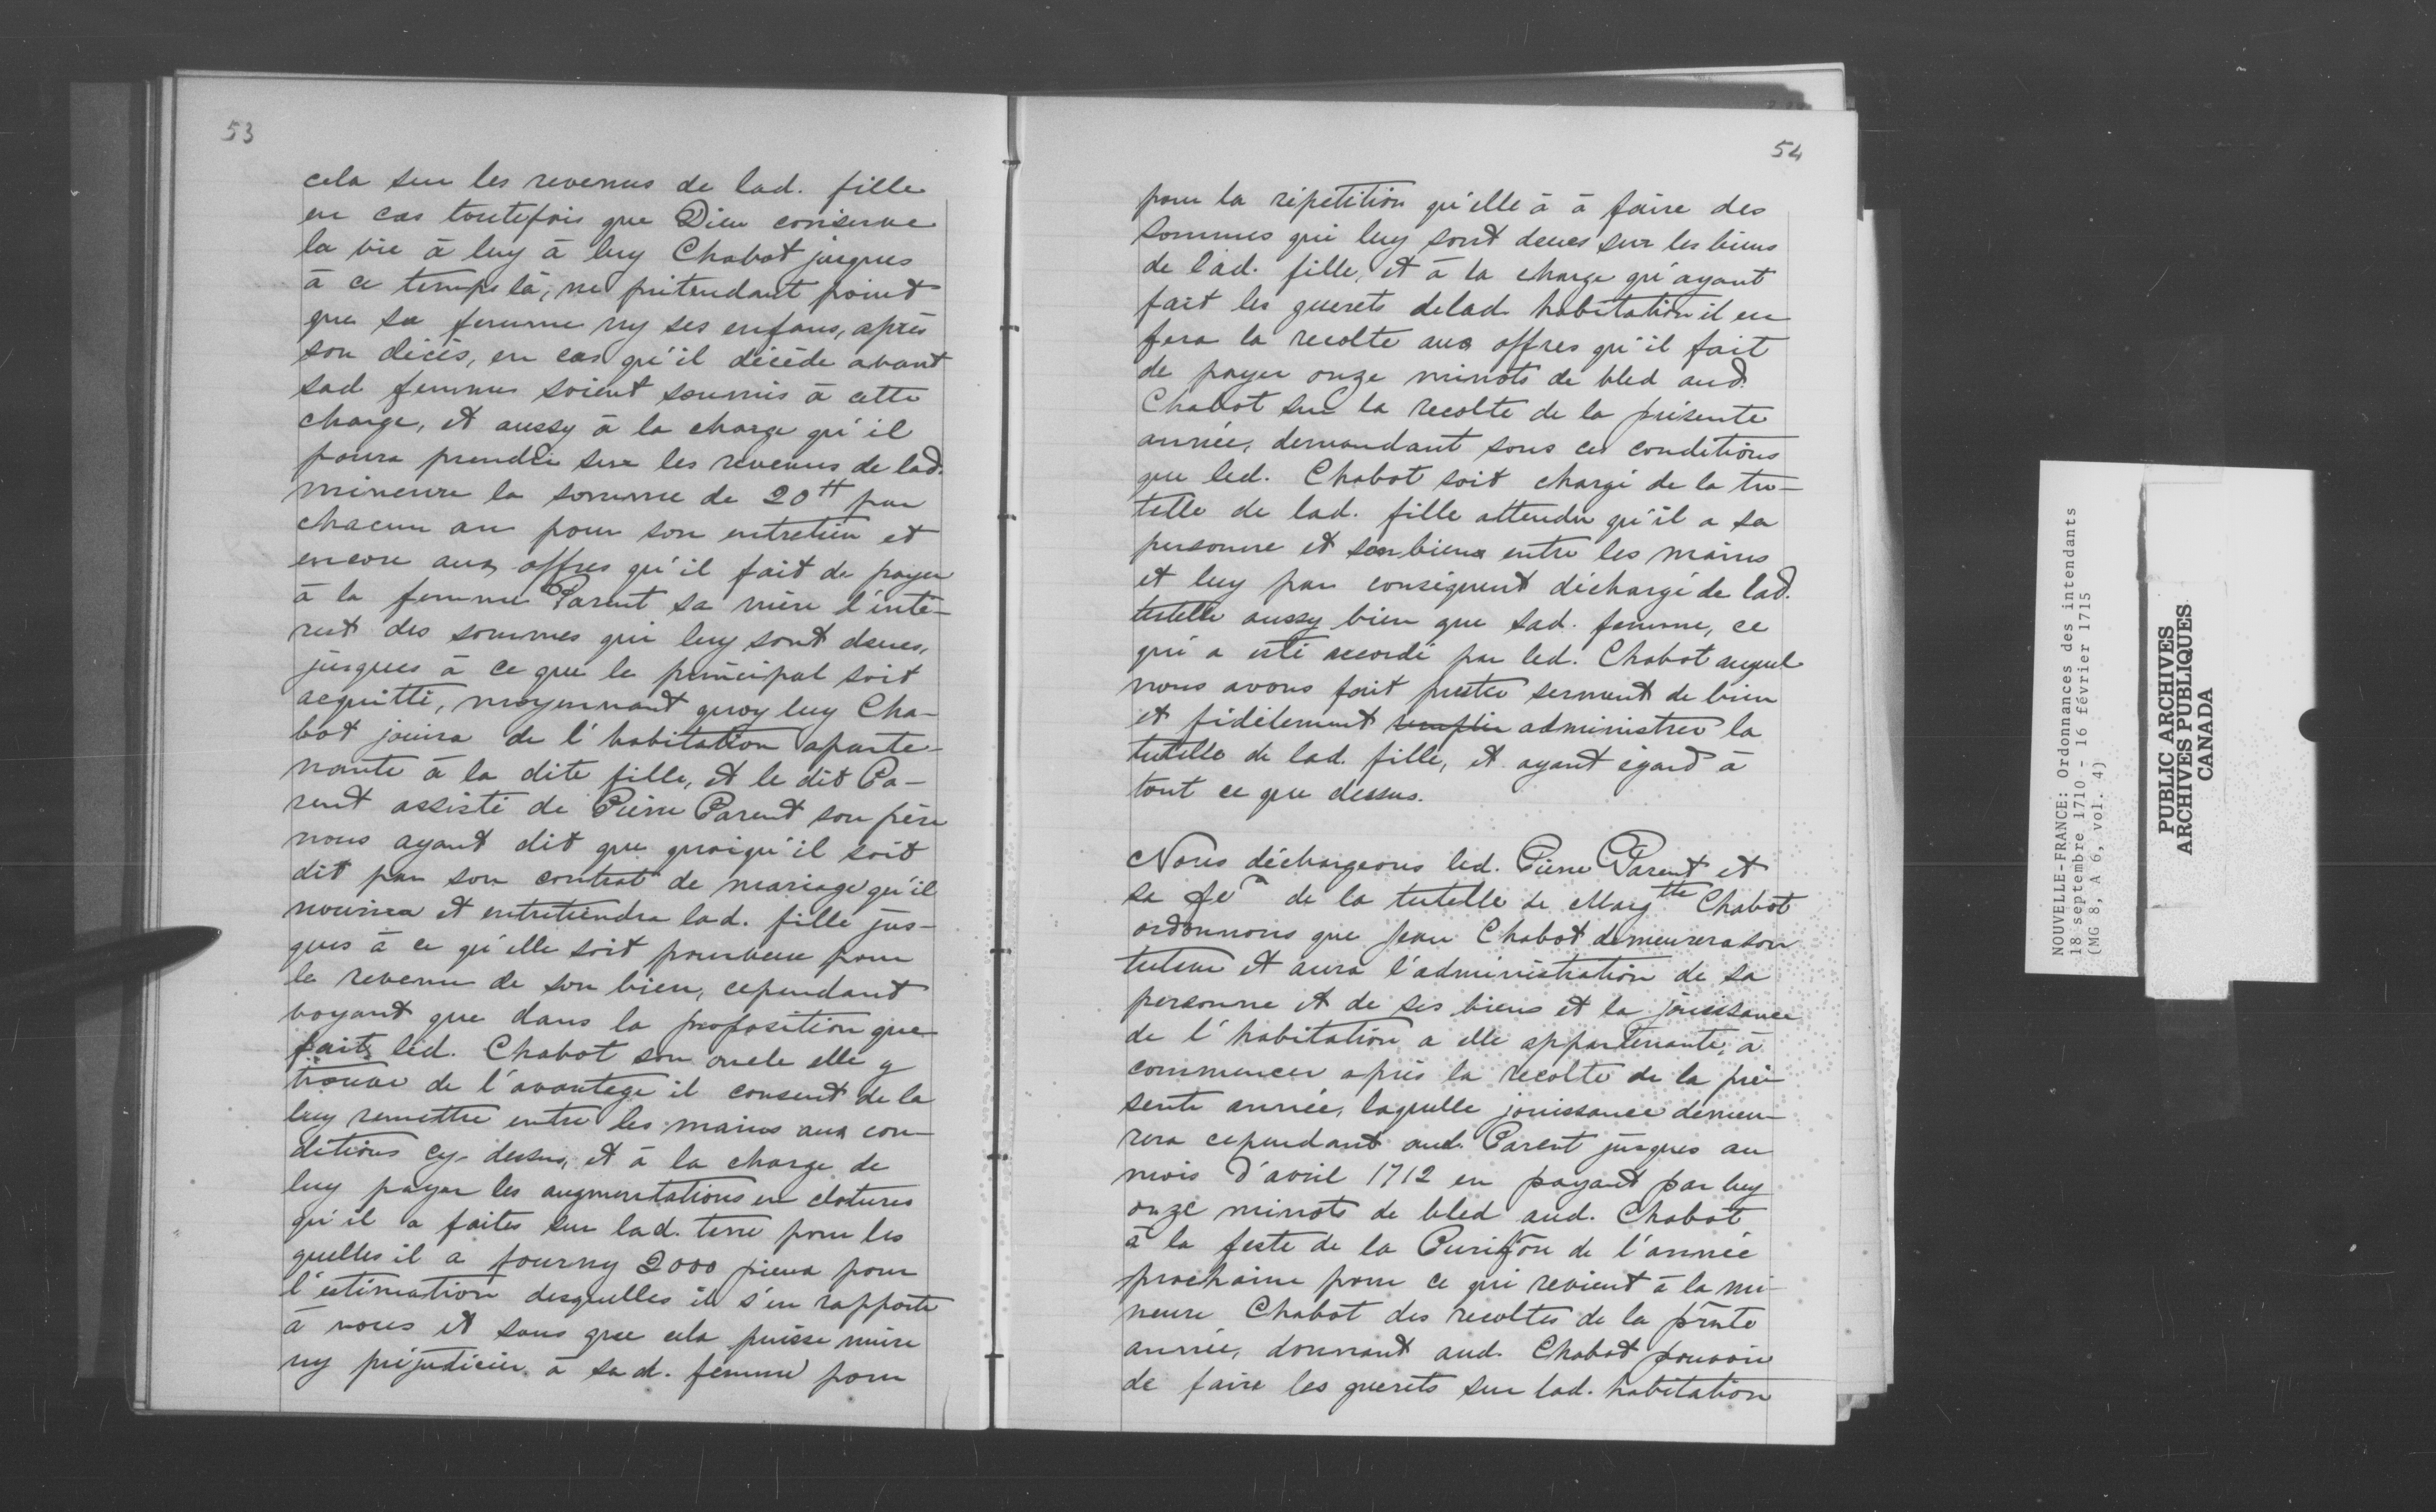 53
cela sur les revenus de lad. fille
en cas toutefois que Dieu conserve
la vie à luy à luy Chabot jusques
à ce temps là, ne prétendant point
que sa femme ny ses enfans, après
son décès, en cas qu'il décède avant
sad femme soient soumis à cette
charge, et aussy à la charge qu'il
poura prendre sur les revenus de lad.
mineure la somme de 20tt par
chacun an pour son entretien et
encore aux offres qu'il fait de payer
à la femme Parent sa mère l'inté-
rest des sommes qui luy sont deues,
jusques à ce que le principal soit
acquitté, moyennant quoy luy Cha-
bot jouira de l'habitation aparte-
nante à la dite fille, et le dit Pa-
rent assisté de Pierre Parent son père
nous ayant dit que quoiqu'il soit
dit par son contrat de mariage qu'il
nourira et entretiendra lad. fille jus-
ques à ce qu'elle soit pourveue pour
le revenu de son bien, cependant
voyant que dans la proposition que
fait led. Chabot son oncle elle y
trouve de l'avantage il consent de la
luy remettre entre les mains aux con-
ditions cy-dessus, et à la charge de
luy payer les augmentations en clotures
qu'il a faites sur lad. terre pour les
quelles il a fourny 2000 pieux pour
l'estimation desquelles il s'en rapporte
à nous et sans que cela puisse nuire
ny préjudicier à sad. femme pour
54
pour la répetition qu'elle à à faire des
sommes qui luy sont deues sur les biens
de lad. fille, et à la charge qu'ayant
fait les guerets delad. habitation il en
fera la recolte aux offres qu'il fait
de payer onze minots de bled aud.
Chabot sur la recolte de la présente
année, demandant sous ces conditions
que led. Chabot soit chargé de la tu-
telle de lad. fille attendu qu'il a sa
personne et son bien entre les mains
et luy par conséquent déchargé de lad.
tutelle aussy bien que sad. femme, ce
qui a esté accordé par led. Chabot auquel
nous avons fait prester serment de bien
et fidèlement remplir administrer la
tutelle de lad. fille, et ayant égard à
tout ce que dessus.
Nous déchargeons led. Pierre Parent et
sa fe de la tutelle de Margtte Chabot
ordonnons que Jean Chabot demeurera son
tuteur et aura l'administration de sa
personne et de ses biens et la jouissance
de l'habitation a elle appartenante, à
commencer après la recolte de la pré-
sente année, laquelle jouissance demeu-
rera cependant aud. Parent jusques au
mois d'avril 1712 en payant par luy
onze minots de bled aud. Chabot
à la feste de la Purifõn de l'année
prochaine pour ce qui revient à la mi-
neure Chabot des recoltes de la pñte
année, donnant aud. Chabot pouvoir
de faire les guerets sur lad. habitation
NOUVELLE-FRANCE: Ordonnances des intendants
18 septembre 1710 - 16 février 1715
(MG 8, A 6, vol. 4)
PUBLIC ARCHIVES
ARCHIVES PUBLIQUES
CANADA